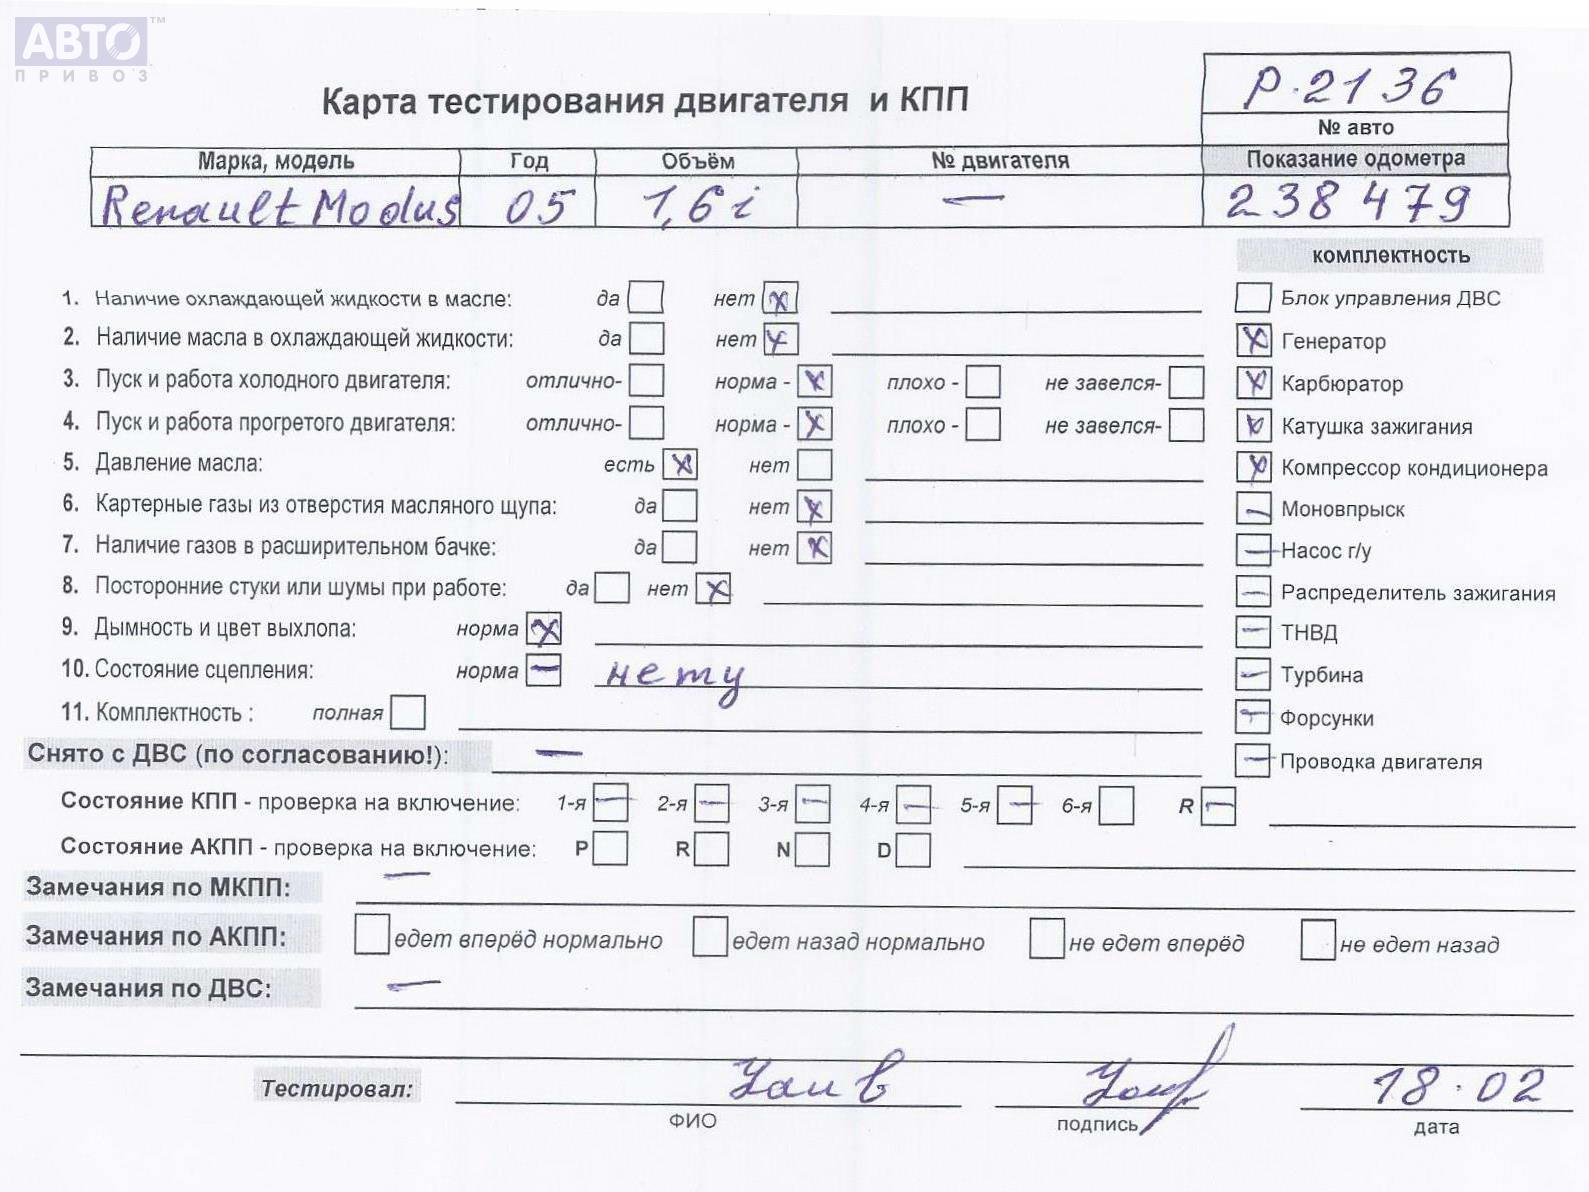 АВТО™
ПРИВОЗ
Р.2136
Карта тестирования двигателя и КПП
№ авто
Марка, модель Год Объём № двигателя Показание одометра
Renault Modus 05 1,6 i — 238 479
комплектность
1. Наличие охлаждающей жидкости в масле: да нет x Блок управления ДВС
2. Наличие масла в охлаждающей жидкости: да нет x x Генератор
3. Пуск и работа холодного двигателя: отлично- норма - x плохо - не завелся- x Карбюратор
4. Пуск и работа прогретого двигателя: отлично- норма - x плохо - не завелся- x Катушка зажигания
5. Давление масла: есть x нет x Компрессор кондиционера
6. Картерные газы из отверстия масляного щупа: да нет x — Моновпрыск
7. Наличие газов в расширительном бачке: да нет x — Насос г/у
8. Посторонние стуки или шумы при работе: да нет x — Распределитель зажигания
9. Дымность и цвет выхлопа: норма x — ТНВД
10. Состояние сцепления: норма — нету — Турбина
11. Комплектность : полная — Форсунки
Снято с ДВС (по согласованию!): — — Проводка двигателя
Состояние КПП - проверка на включение: 1-я — 2-я — 3-я — 4-я — 5-я — 6-я R —
Состояние АКПП - проверка на включение: P R N D
Замечания по МКПП: —
Замечания по АКПП: едет вперёд нормально едет назад нормально не едет вперёд не едет назад
Замечания по ДВС: —
Тестировал: 18.02
ФИО подпись дата